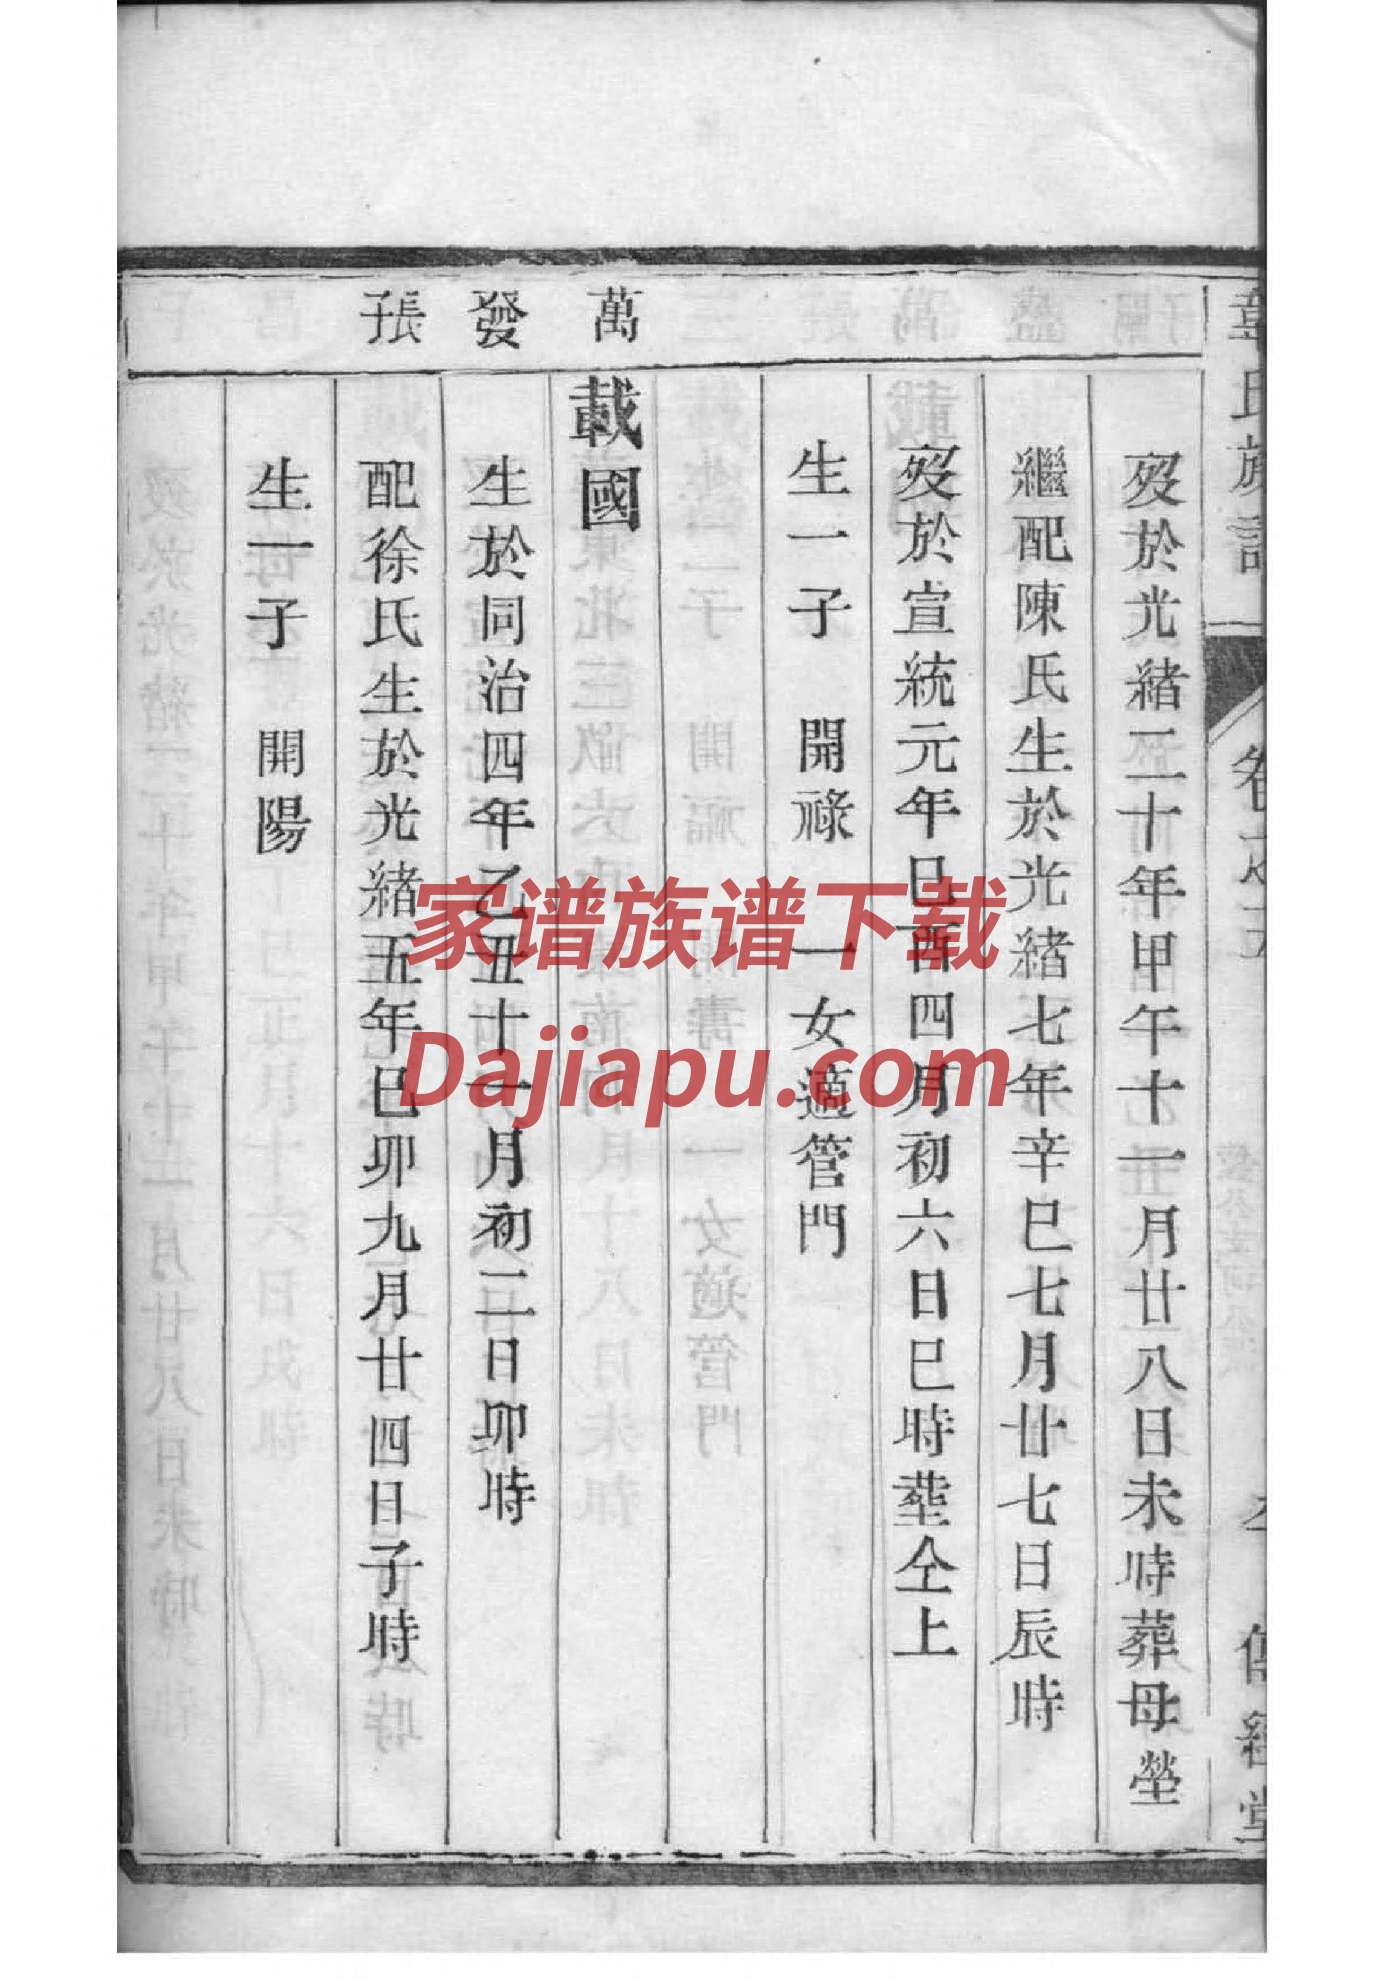 歿於光緒二十年甲午十一月廿八日未時葬母塋
繼配陳氏生於光緒七年辛巳七月廿七日辰時
歿於宣統元年巳酉四月初六日巳時塟仝上
生一子 開祿 一女適管門
萬發子張
載國
生於同治四年乙丑十一月初二日卯時
配徐氏生於光緒五年巳卯九月廿四日子時
生一子 開陽
家谱族谱下载
Dajiapu.com